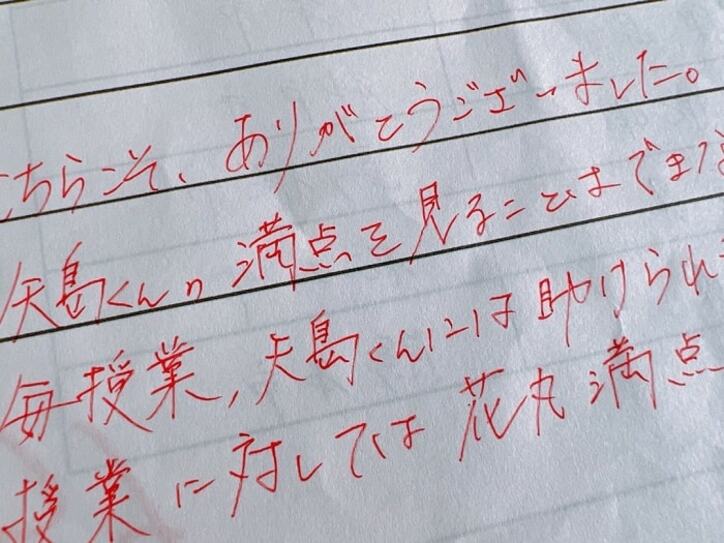 こちらこそ、ありがとうございました。
矢島くんの満点を見ることはできま
毎授業、矢島くんには助けられ
授業に対しては花丸満点